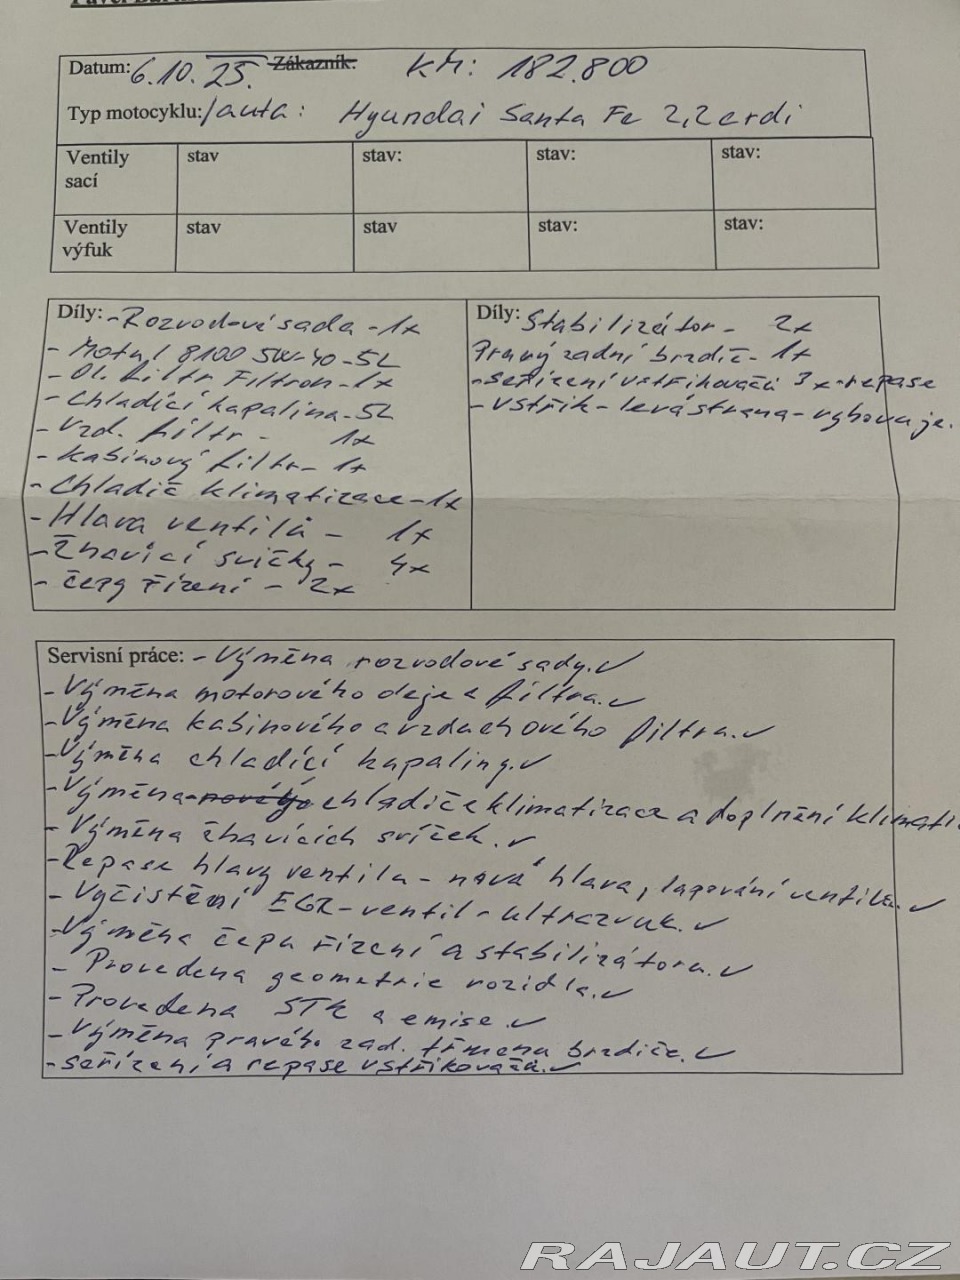 Datum: 6.10.25. Zákazník: KM: 182.800
Typ motocyklu:/auta: Hyundai Santa Fe 2,2crdi
Ventily sací stav stav: stav: stav:
Ventily výfuk stav stav stav: stav:
Díly: - Rozvodová sada - 1x
- Motul 8100 5W-40 - 5L
- Ol. filtr Filtron - 1x
- Chladící kapalina - 5L
- Vzd. filtr - 1x
- Kabinový filtr - 1x
- Chladič klimatizace - 1x
- Hlava ventilů - 1x
- Žhavící svíčky - 4x
- Čepy řízení - 2x
Díly: Stabilizátor - 2x
Pravý zadní brzdič - 1x
- Seřízení vstřikovačů 3x - repase
- Vstřik - levá strana - vyhovuje.
Servisní práce: - Výměna rozvodové sady. ✓
- Výměna motorového oleje a filtra. ✓
- Výměna kabinového a vzduchového filtra. ✓
- Výměna chladící kapaliny. ✓
- Výměna nového chladiče klimatizace a doplnění klimati
- Výměna žhavících svíček. ✓
- Repase hlavy ventila - nová hlava, lapování ventila. ✓
- Vyčistění EGR - ventil - ultrazvuk. ✓
- Výměna čepu řízení a stabilizátoru. ✓
- Provedena geometrie vozidla. ✓
- Provedena STK a emise. ✓
- Výměna pravého zad. třmena brzdiče. ✓
- Seřízení a repase vstřikovačů. ✓
RAJAUT.CZ